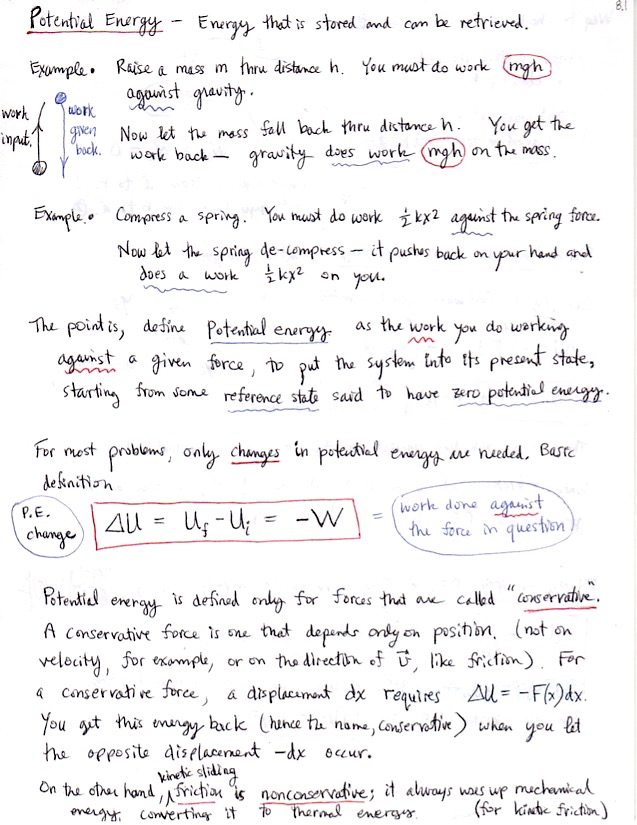 8.1
Potential Energy – Energy that is stored and can be retrieved.
Example • Raise a mass m thru distance h. You must do work mgh
against gravity.
work input.
work given back.
Now let the mass fall back thru distance h. You get the
work back – gravity does work mgh on the mass.
Example • Compress a spring. You must do work ½kx² against the spring force.
Now let the spring de-compress – it pushes back on your hand and
does a work ½kx² on you.
The point is, define Potential energy as the work you do working
against a given force, to put the system into its present state,
starting from some reference state said to have zero potential energy.
For most problems, only changes in potential energy are needed. Basic
definition
P.E. change
ΔU = U_f - U_i = -W
= work done against
the force in question
Potential energy is defined only for forces that are called "conservative".
A conservative force is one that depends only on position. (not on
velocity, for example, or on the direction of v⃗, like friction). For
a conservative force, a displacement dx requires ΔU = -F(x)dx.
You get this energy back (hence the name, conservative) when you let
the opposite displacement -dx occur.
On the other hand, kinetic sliding friction is nonconservative; it always uses up mechanical
energy, converting it to thermal energy. (for kinetic friction)